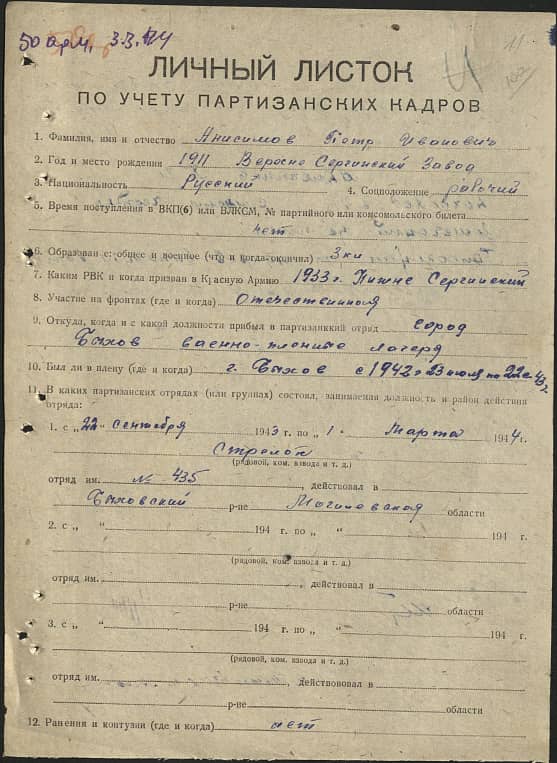 50 арм. 3.3.44
11
ЛИЧНЫЙ ЛИСТОК
ПО УЧЕТУ ПАРТИЗАНСКИХ КАДРОВ
1. Фамилия, имя и отчество Анисимов Петр Иванович
2. Год и место рождения 1911 Верхне Сергинский Завод
3. Национальность Русский 4. Соцположение рабочий
5. Время поступления в ВКП(б) или ВЛКСМ, № партийного или комсомольского билета
нет
6. Образование: общее и военное (что и когда окончил) 3 кл
7. Каким РВК и когда призван в Красную Армию 1933 г. Нижне Сергинский
8. Участие на фронтах (где и когда) Отечественная
9. Откуда, когда и с какой должности прибыл в партизанский отряд город
Быхов военно-пленные лагеря
10. Был ли в плену (где и когда) г. Быхов с 1942 г 23 июля по 22 с 43 г
11. В каких партизанских отрядах (или группах) состоял, занимаемая должность и район действия
отряда:
1. с „22“ сентября 1943 г. по „1“ Марта 1944 г.
Стрелок
(рядовой, ком. взвода и т. д.)
отряд им. № 435, действовал в
Быховский р-не Могилевская области
2. с „ “ 194 г. по „ “ 194 г.
(рядовой, ком. взвода и т. д.)
отряд им. , действовал в
р-не области
3. с „ “ 194 г. по „ “ 194 г.
(рядовой, ком. взвода и т. д.)
отряд им. , действовал в
р-не области
12. Ранения и контузии (где и когда) нет